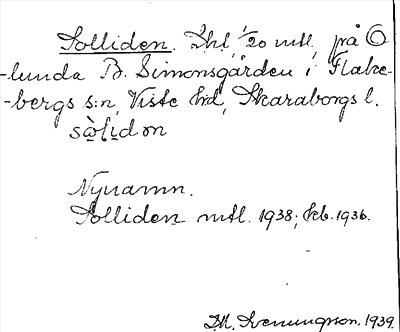 Solliden. Lht, 1/20 mtl, på O
-lunda B. Simonsgården i Flake-
-bergs s:n, Viste hd, Skaraborgs l.
sòlidɷn
Nynamn.
Solliden mtl. 1938; Feb. 1936.
Svenungsson. 1939.